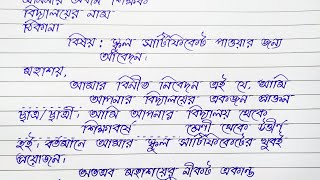 মাননীয় প্রধান শিক্ষক
বিদ্যালয়ের নাম
ঠিকানা
বিষয় : স্কুল সার্টিফিকেট পাওয়ার জন্য
আবেদন।
মহাশয়,
আমার বিনীত নিবেদন এই যে, আমি
আপনার বিদ্যালয়ের একজন প্রাক্তন
ছাত্র/ছাত্রী। আমি আপনার বিদ্যালয় থেকে
শিক্ষাবর্ষে শ্রেণী থেকে উত্তীর্ণ
হই। বর্তমানে আমার স্কুল সার্টিফিকেটের খুবই
প্রয়োজন।
অতএব মহাশয়ের নিকট একান্ত